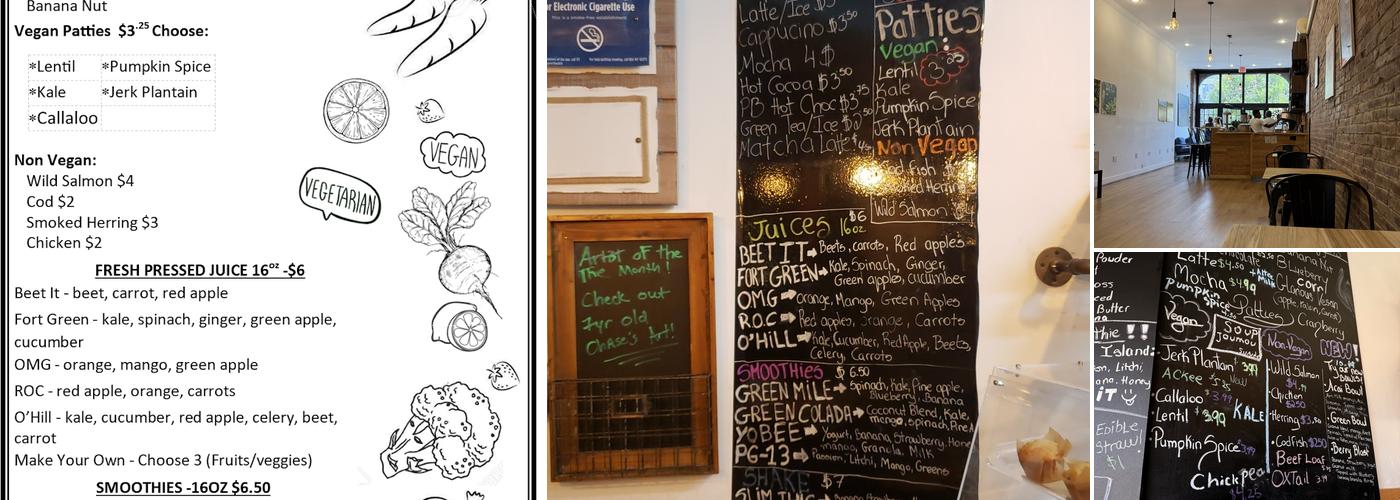 Banana Nut
Vegan Patties $3.25 Choose:
*Lentil *Pumpkin Spice
*Kale *Jerk Plantain
*Callaloo
Non Vegan:
Wild Salmon $4
Cod $2
Smoked Herring $3
Chicken $2
FRESH PRESSED JUICE 16oz -$6
Beet It - beet, carrot, red apple
Fort Green - kale, spinach, ginger, green apple,
cucumber
OMG - orange, mango, green apple
ROC - red apple, orange, carrots
O'Hill - kale, cucumber, red apple, celery, beet,
carrot
Make Your Own - Choose 3 (Fruits/veggies)
SMOOTHIES -16OZ $6.50
VEGAN
VEGETARIAN
or Electronic Cigarette Use
This is a smoke-free establishment.
Artist of the
The Month!
Check out
7yr old
Chase's Art!
Latte/Ice $3
Cappucino $3.50
Mocha 4$
Hot Cocoa $3.50
PB Hot Choc $3.75
Green Tea/Ice
Matcha Latte
Patties
Vegan:
Lentil 3.25
Kale
Pumpkin Spice
Jerk Plantain
Non Vegan
Cod Fish
Smoked Herring
Wild Salmon $4
Juices 16oz $6
BEET IT → Beets, carrots, Red apples
FORT GREEN → Kale, Spinach, Ginger,
Green apples, cucumber
OMG → orange, Mango, Green Apples
R.O.C → Red apples, orange, Carrots
O'HILL → Kale, Cucumber, Red Apple, Beets,
Celery, Carrots
SMOOTHIES $6.50
GREEN MILE → Spinach, Kale, Pine apple,
Blueberry, Banana
GREEN COLADA → Coconut Blend, Kale,
mango, Spinach, Pine A
YOBEE → Yogurt, Banana, Strawberry, Hone
Granola, Milk
PG-13 → Passion, Litchi, Mango, Greens
SHAKE $7
Powder
Butter
thie !!
Island:
Litchi,
Honey
iT
Edible
Straw!
$1
Latte $4.50
Mocha $4.99
Pumpkin
Spice
Blueberry
corn
Cranberry
Patties
Vegan
SOUP
JOUMOU
Non-Vegan
NEW!
Jerk Plantain $3.99
Ackee
Callaloo $3.99
Lentil $3.99
KALE
Pumpkin Spice 3.99
Chickpea
$4.25
Wild Salmon
$4.99
Chicken
$2.50
Herring $3.50
Cod Fish $2.50
Beef Loaf
OXTail
Acai Bowl
Green Bowl
Berry Blast